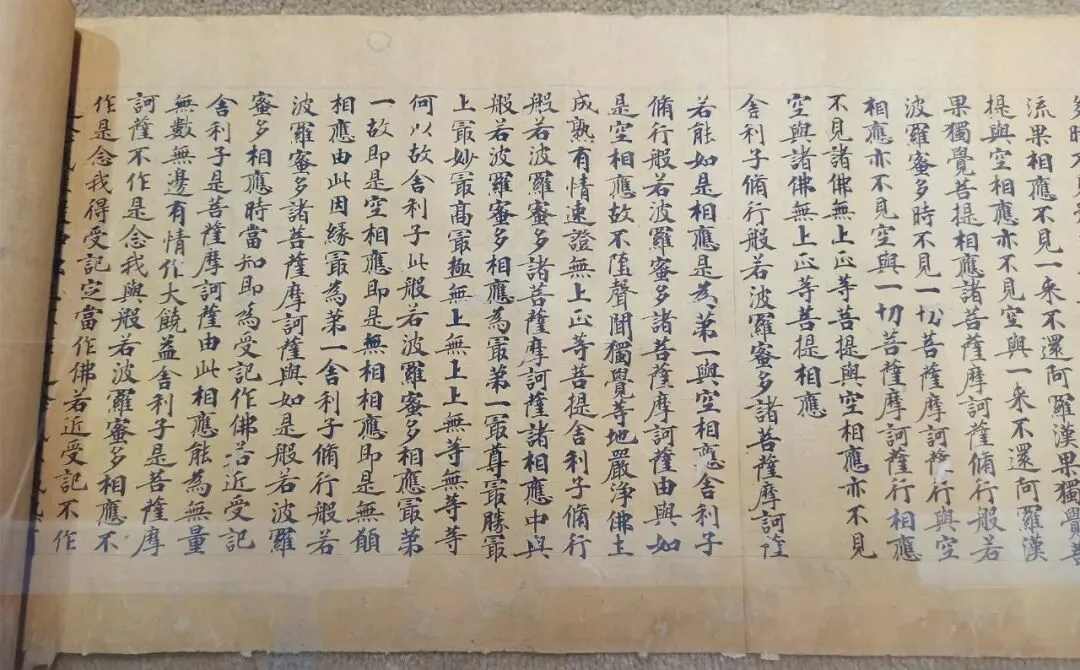 流果相應不見一来不還阿羅漢果獨覺菩
提與空相應亦不見空與一来不還阿羅漢
果獨覺菩提相應諸菩薩摩訶薩脩行般若
波羅蜜多時不見一切菩薩摩訶薩行與空
相應亦不見空與一切菩薩摩訶薩行相應
不見諸佛無上正等菩提與空相應亦不見
空與諸佛無上正等菩提相應
舍利子脩行般若波羅蜜多諸菩薩摩訶薩
若能如是相應是為第一與空相應舍利子
脩行般若波羅蜜多諸菩薩摩訶薩由與如
是空相應故不墮聲聞獨覺等地嚴淨佛土
成熟有情速證無上正等菩提舍利子脩行
般若波羅蜜多諸菩薩摩訶薩諸相應中與
般若波羅蜜多相應為㝡第一㝡尊㝡勝㝡
上㝡妙㝡高㝡極無上無上上無等無等等
何以故舍利子此般若波羅蜜多相應㝡第
一故即是空相應即是無相相應即是無願
相應由此因緣㝡為第一舍利子脩行般若
波羅蜜多諸菩薩摩訶薩與如是般若波羅
蜜多相應時當知即為受記作佛若近受記
舍利子是菩薩摩訶薩由此相應能為無量
無數無邊有情作大饒益舍利子是菩薩摩
訶薩不作是念我與般若波羅蜜多相應不
作是念我得受記定當作佛若近受記不作